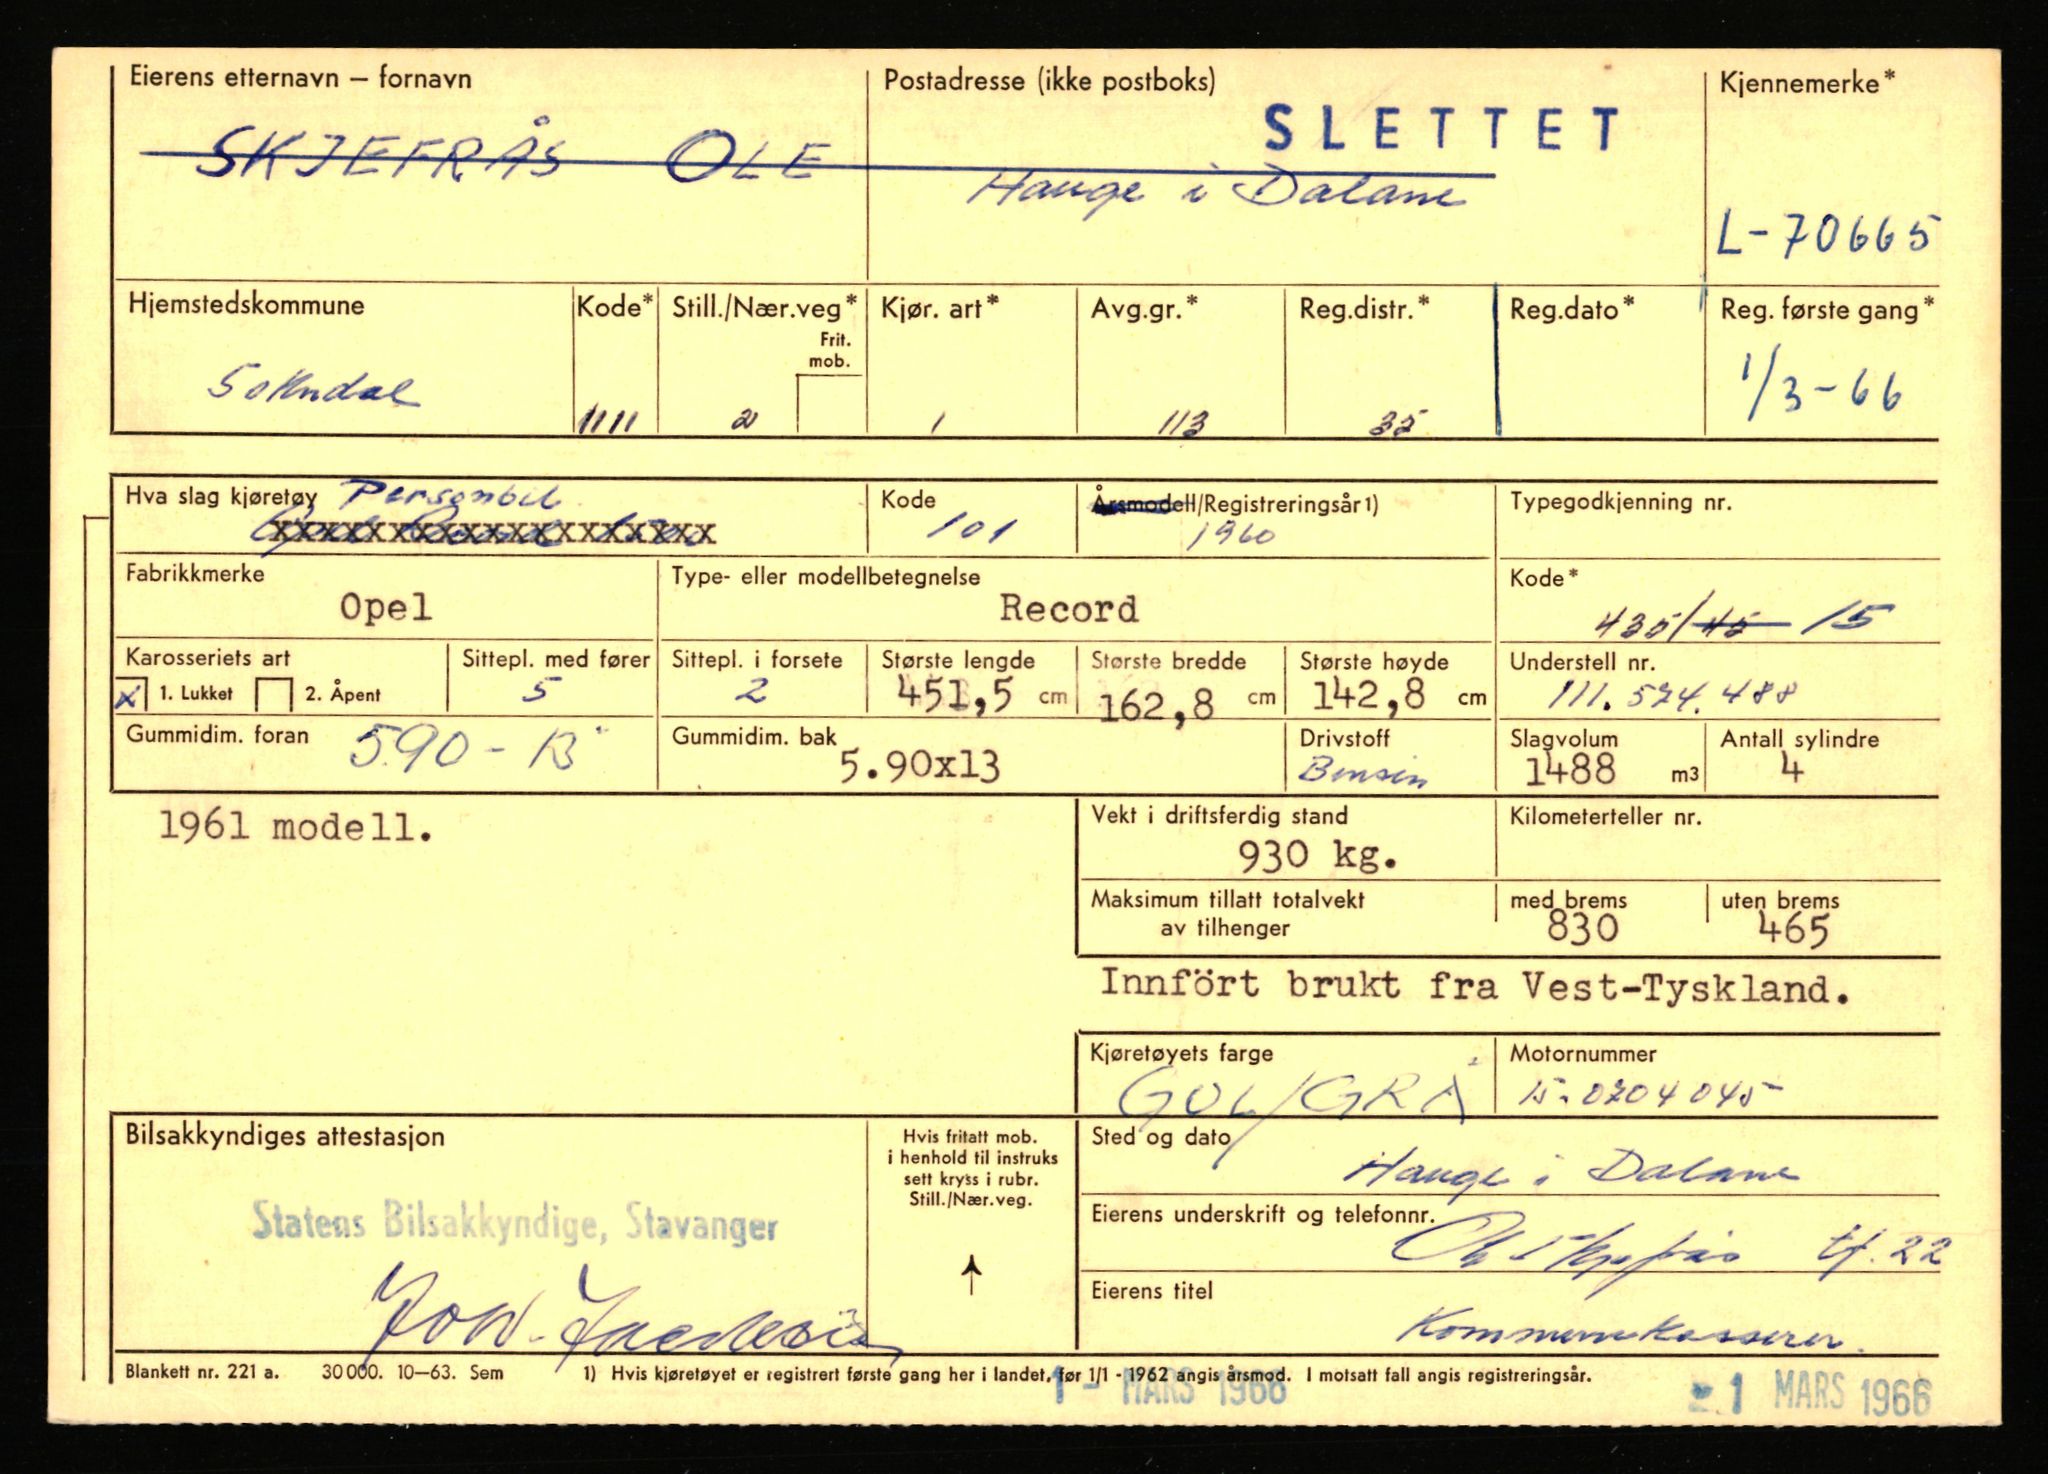 Eierens etternavn – fornavn
SKJEFRÅS OLE
Postadresse (ikke postboks)
SLETTET
Hauge i Dalane
Kjennemerke*
L-70665
Hjemstedskommune
Sokndal
Kode*
1111
Still./Nær.veg*
Frit.
mob.
2
Kjør. art*
1
Avg.gr.*
113
Reg.distr.*
35
Reg.dato*
Reg. første gang*
1/3-66
Hva slag kjøretøy Personbil
xxxxxxxxxxxxxxxxxxxx
Kode
101
Årsmodell/Registreringsår1)
1960
Typegodkjenning nr.
Fabrikkmerke
Opel
Type- eller modellbetegnelse
Record
Kode*
435/45 15
Karosseriets art
x 1. Lukket 2. Åpent
Sittepl. med fører
5
Sittepl. i forsete
2
Største lengde
451,5 cm
Største bredde
162,8 cm
Største høyde
142,8 cm
Understell nr.
111.574.488
Gummidim. foran 5.90-13"
Gummidim. bak
5.90x13
Drivstoff
Bensin
Slagvolum
1488 m3
Antall sylindre
4
1961 modell.
Vekt i driftsferdig stand
930 kg.
Kilometerteller nr.
Maksimum tillatt totalvekt
av tilhenger
med brems
830
uten brems
465
Innfört brukt fra Vest-Tyskland.
Kjøretøyets farge
GUL/GRÅ
Motornummer
15-0704045
Bilsakkyndiges attestasjon
Statens Bilsakkyndige, Stavanger
Hvis fritatt mob.
i henhold til instruks
sett kryss i rubr.
Still./Nær.veg.
Sted og dato
Hauge i Dalane
Eierens underskrift og telefonnr.
Ole Skjefrås tf. 22
Eierens titel
Kommunekasserer.
Blankett nr. 221 a. 30000. 10–63. Sem
1) Hvis kjøretøyet er registrert første gang her i landet, før 1/1 - 1962 angis årsmod. I motsatt fall angis registreringsår.
1 - MARS 1966
- 1 MARS 1966